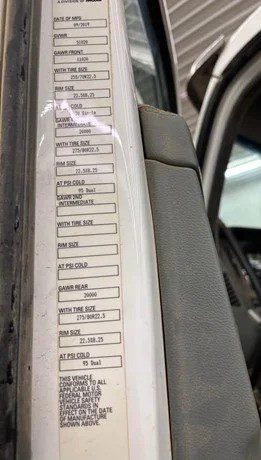 A DIVISION OF
DATE OF MFG
09/2019
GVWR
51020
GAWR FRONT
11020
WITH TIRE SIZE
255/70R22.5
RIM SIZE
22.5X8.25
AT PSI COLD
GAWR 1ST
INTERMEDIATE
20000
WITH TIRE SIZE
275/80R22.5
RIM SIZE
22.5X8.25
AT PSI COLD
95 Dual
GAWR 2ND
INTERMEDIATE
WITH TIRE SIZE
RIM SIZE
AT PSI COLD
GAWR REAR
20000
WITH TIRE SIZE
275/80R22.5
RIM SIZE
22.5X8.25
AT PSI COLD
95 Dual
THIS VEHICLE
CONFORMS TO ALL
APPLICABLE U.S.
FEDERAL MOTOR
VEHICLE SAFETY
STANDARDS IN
EFFECT ON THE DATE
OF MANUFACTURE
SHOWN ABOVE.